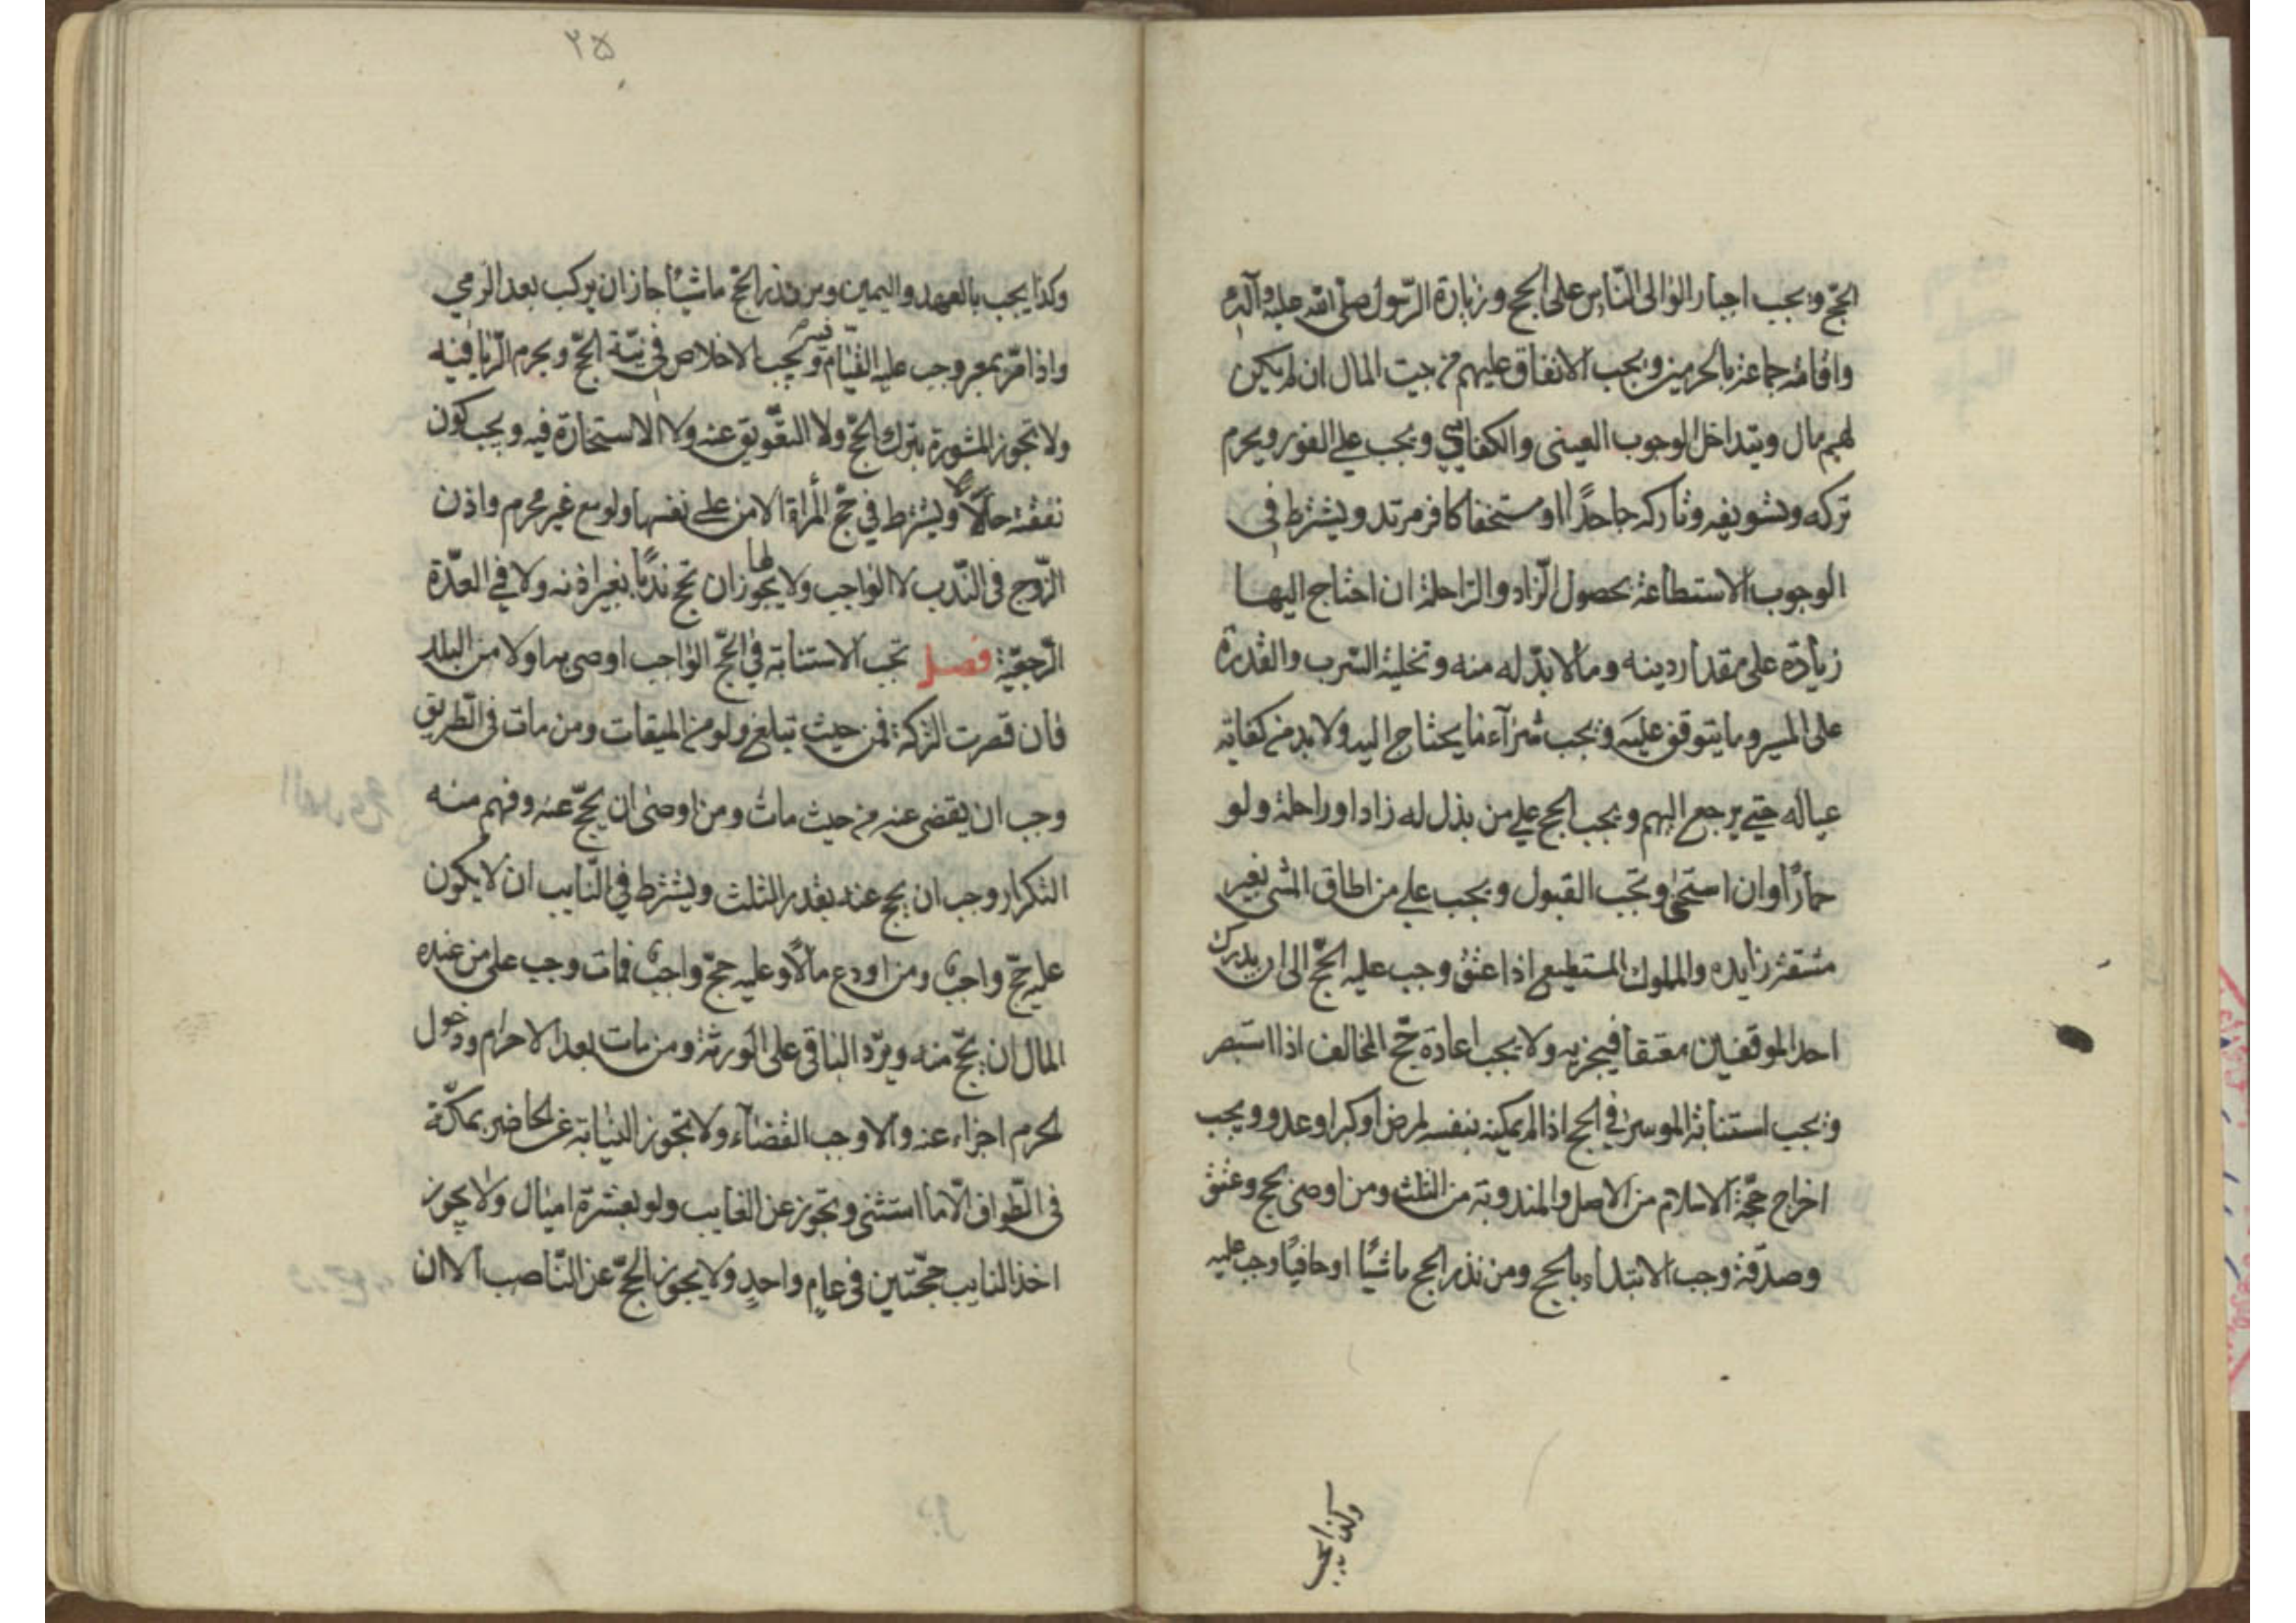 الحجّ ويجب اجبار الوالى النّاس على الحج وزيارة الرّسول صلّى الله عليه وآله
واقامة جماعة بالحرمين ويجب الانفاق عليهم من بيت المال ان لم يكن
لهم مال ويتداخل الوجوب العينى والكفائي ويجب على الفور ويحرم
تركه وتسويفه وتاركه جاحدًا او مستخفا كافر مرتد ويشترط فى
الوجوب الاستطاعة بحصول الزّاد والرّاحلة ان احتاج اليها
زيادة على مقدار دينه وما لا بدّ له منه وتخلية السّرب والقدرة
على المسير وما يتوقف عليه ويجب شرآء ما يحتاج اليه ولا بد من كفاية
عياله حتى يرجع اليهم ويجب الحج على من بذل له زادا وراحلة ولو
حمارًا وان استحى وتجب القبول ويجب على من اطاق المشى بغير
مشقة زايده والمملوك المستطيع اذا عتق وجب عليه الحجّ الى ان يدرك
احد الموقفين معتقا فيجزيه ولا يجب اعادة حجّ المخالف اذا استبصر
ويجب استنابة الموسر في الحج اذا لم يمكنه بنفسه لمرض او كبر او عدو ويجب
اخراج حجّة الاسلام من الاصل والمندوبة من الثلث ومن اوصى بحج وعتق
وصدقة وجب الابتداء بالحج ومن نذر الحج ماشيًا او حافيًا وجب عليه
وكذا يجب
٢۵
وكذا يجب بالعهد واليمين ومن نذر الحجّ ماشيًا جاز ان يركب بعد الرّمي
واذا مرّ بمعبر وجب عليه القيام فيه ويجب الاخلاص في نيّة الحجّ ويحرم الرّيا فيه
ولا تجوز المشورة بترك الحجّ ولا التعويق عنه ولا الاستخارة فيه ويجب كون
نفقته حلالًا ويشترط في حجّ المرأة الامن على نفسها ولو مع غير محرم واذن
الزّوج فى النّدب لا الواجب ولا يجوز لها ان تحج ندبًا بغير اذنه ولا في العدّة
الرّجعيّة فصل تجب الاستنابة في الحجّ الواجب اوصى به او لا من البلد
فان قصرت التركة فمن حيث تبلغ ولو من الميقات ومن مات فى الطّريق
وجب ان يقضى عنه من حيث مات ومن اوصى ان يحجّ عنه وفهم منه
التكرار وجب ان يحج عنه بقدر الثلث ويشترط في النّايب ان لا يكون
عليه حجّ واجب ومن اودع مالًا وعليه حجّ واجب فمات وجب على من عنده
المال ان يحجّ منه ويردّ الباقى على الورثة ومن مات بعد الاحرام ودخول
الحرم اجزاء عنه والا وجب القضآء ولا تجوز النيابة عن الحاضر بمكّة
فى الطّواف الّا ما استثنى وتجوز عن الغايب ولو بعشرة اميال ولا يجوز
اخذ النايب حجّتين فى عام واحدٍ ولا يجوز الحجّ عن النّاصب الا ان